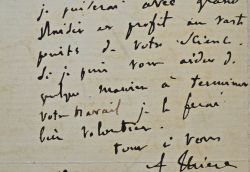 je puiserai avec grand
plaisir et profit au vaste
puits de votre science.
Si je puis vous aider de
quelque manière à terminer
votre travail je le ferai
bien volontiers.
tout à vous
A